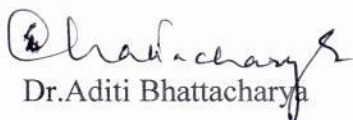 Bhattacharya
Dr.Aditi Bhattacharya